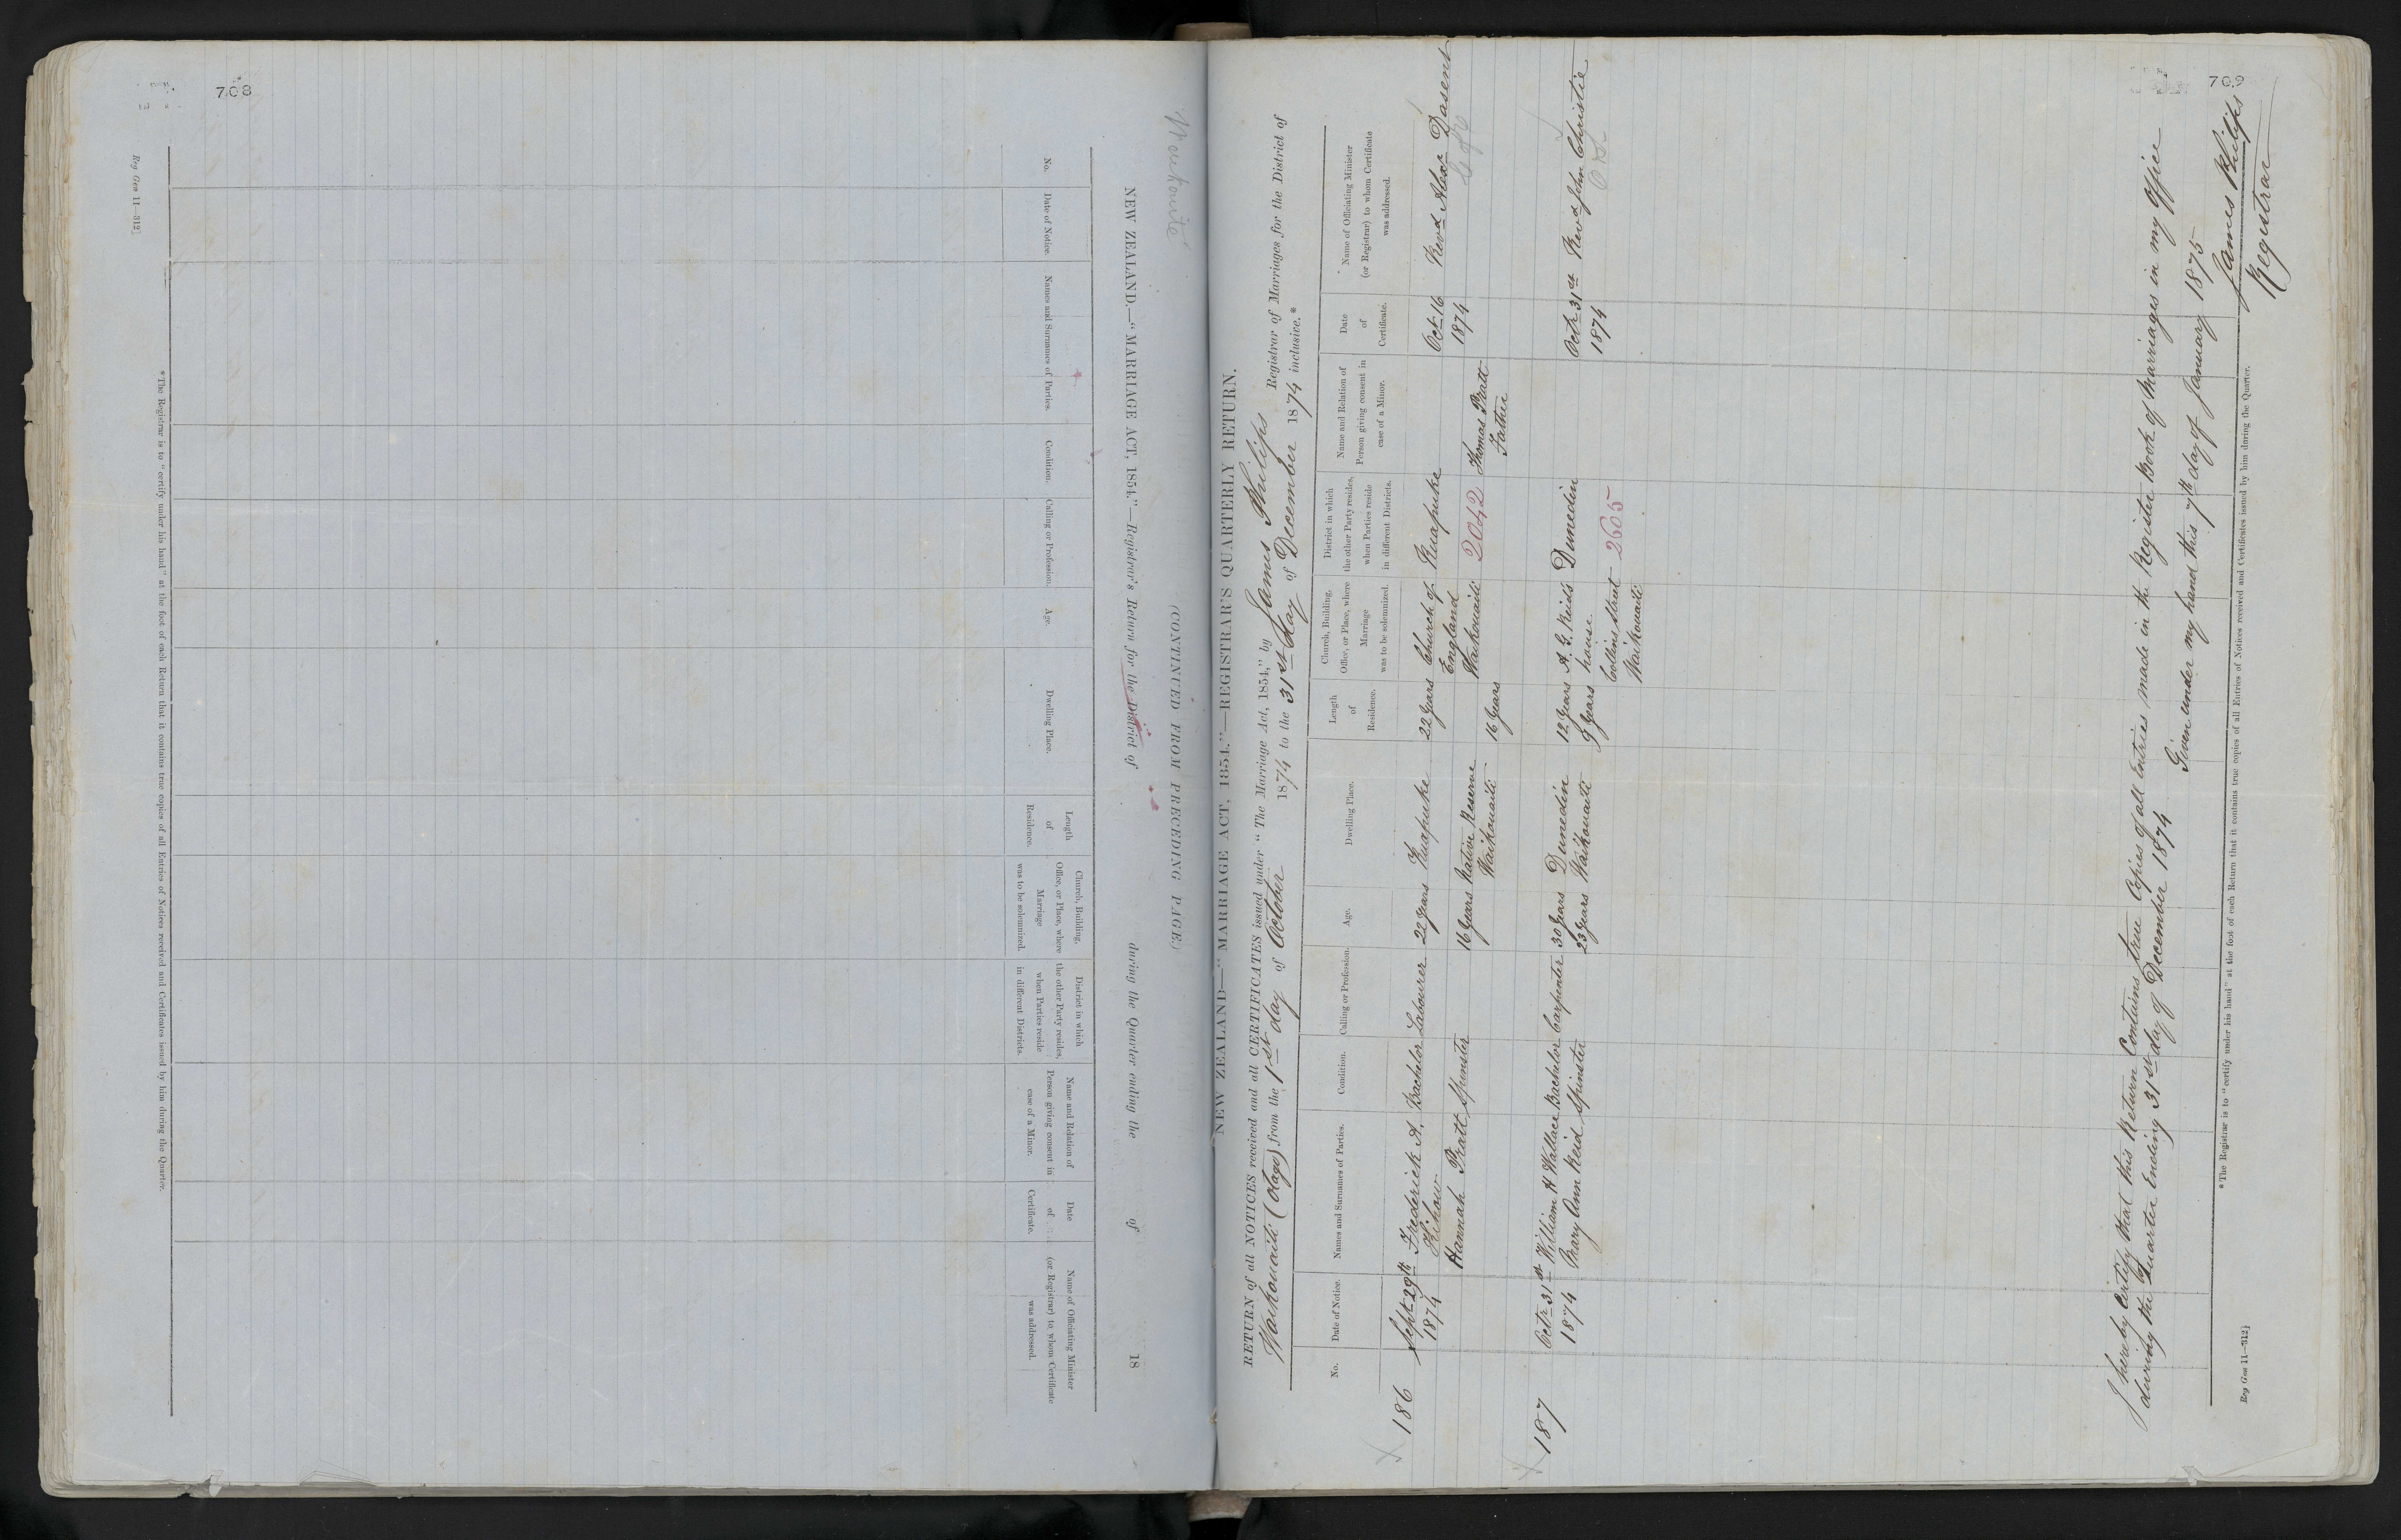 708
Waikouaiti
(CONTINUED FROM PRECEDING PAGE.)
NEW ZEALAND.—"MARRIAGE ACT, 1854."—Registrar's Return for the District of during the Quarter ending the of 18
No.
Date of Notice.
Names and Surnames of Parties.
Condition.
Calling or Profession.
Age.
Dwelling Place.
Length of Residence.
Church, Building, Office, or Place, where Marriage was to be solemnized.
District in which the other Party resides, when Parties reside in different Districts.
Name and Relation of Person giving consent in case of a Minor.
Date of Certificate.
Name of Officiating Minister (or Registrar) to whom Certificate was addressed.
*The Registrar is to "certify under his hand" at the foot of each Return that it contains true copies of all Entries of Notices received and Certificates issued by him during the Quarter.
Reg Gen 11—312]
709
NEW ZEALAND—"MARRIAGE ACT, 1854."—REGISTRAR'S QUARTERLY RETURN.
RETURN of all NOTICES received and all CERTIFICATES issued under "The Marriage Act, 1854," by James Philips Registrar of Marriages for the District of
Waikouaiti (Otago) from the 1st day of October 1874 to the 31st day of December 1874 inclusive.*
No.
Date of Notice.
Names and Surnames of Parties.
Condition.
Calling or Profession.
Age.
Dwelling Place.
Length of Residence.
Church, Building, Office, or Place, where Marriage was to be solemnized.
District in which the other Party resides, when Parties reside in different Districts.
Name and Relation of Person giving consent in case of a Minor.
Date of Certificate.
Name of Officiating Minister (or Registrar) to whom Certificate was addressed.
186 Sept 29th Frederick A. Bachelor Labourer 22 years Ruapuke 22 years Church of Ruapuke Oct 16 Revd Alexr Dasent
1874 Kihau England 1874 C of E
Hannah Pratt Spinster 16 years Native Reserve Waikouaiti 2042 Thomas Pratt
Waikouaiti 16 years Father
187 Octr 31st William H Wallace Bachelor Carpenter 30 years Dunedin 12 years A. G. Reid's Dunedin Octr 31st Revd John Christie
1874 Mary Ann Reid Spinster 23 years Waikouaiti 9 years house 1874
Collins Street 2605
Waikouaiti
I hereby Certify that this Return Contains true Copies of all Entries made in the Register Book of Marriages in my Office
during the Quarter Ending 31st day of December 1874
Given under my hand this 7th day of January 1875
James Philips
Registrar
*The Registrar is to "certify under his hand" at the foot of each Return that it contains true copies of all Entries of Notices received and Certificates issued by him during the Quarter.
Reg Gen 11—312]